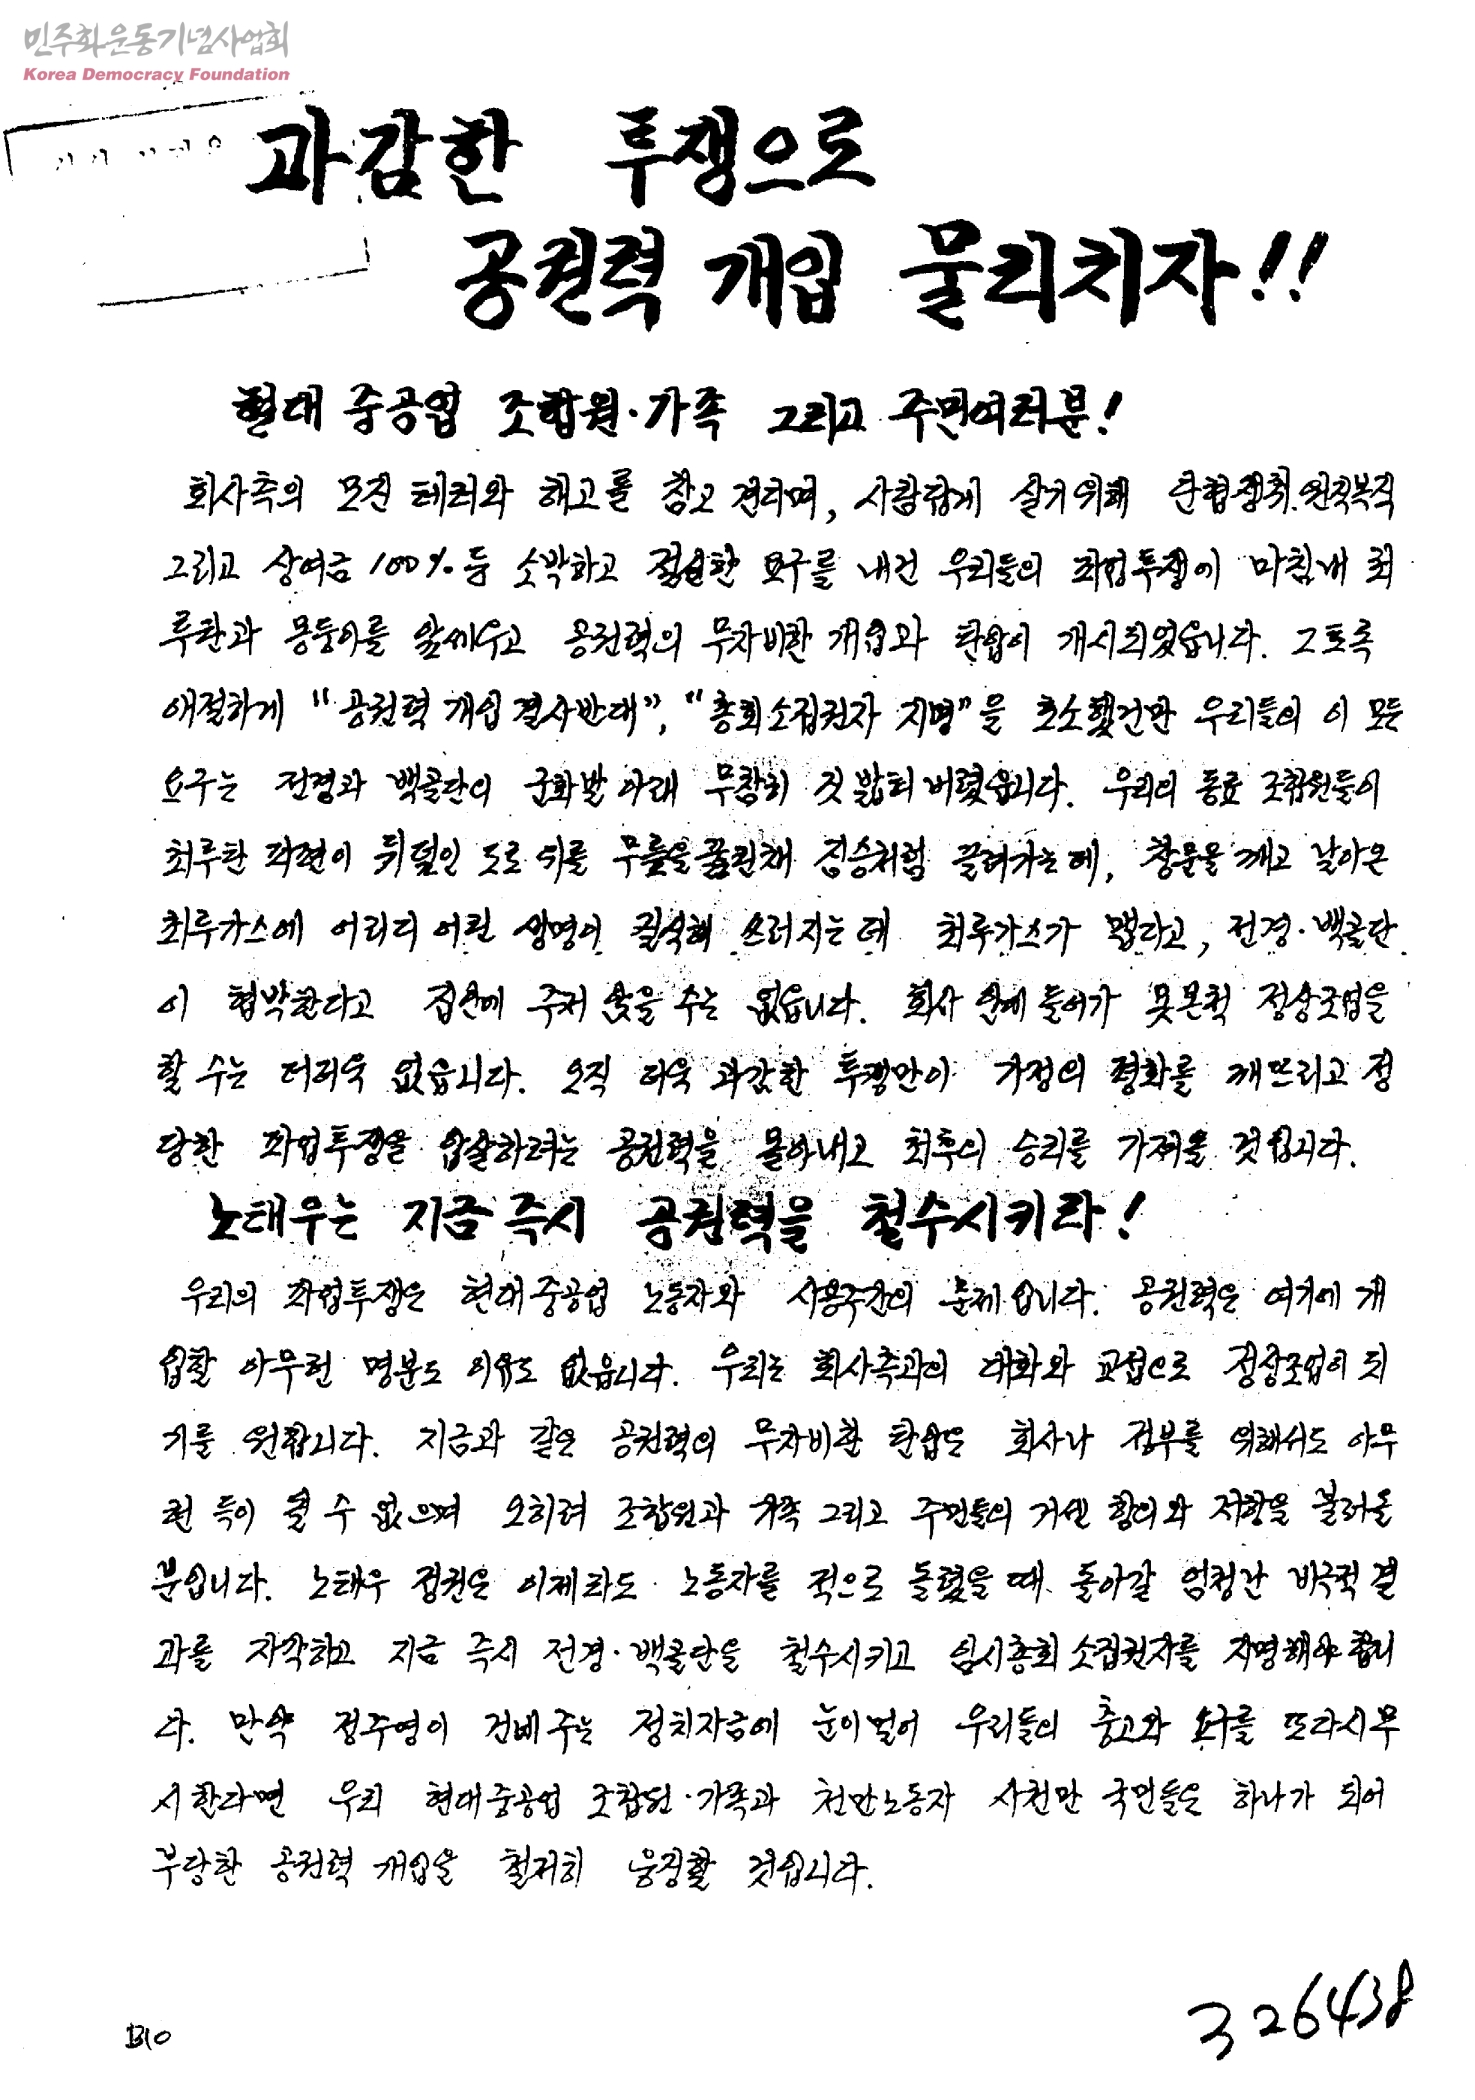 민주화운동기념사업회
Korea Democracy Foundation
과감한 투쟁으로
공권력 개입 물리치자!!
현대 중공업 조합원·가족 그리고 주민여러분!
회사측의 모진 테러와 해고를 참고 견디며, 사람답게 살기위해 단협쟁취.원직복직
그리고 상여금 100% 등 소박하고 절실한 요구를 내건 우리들의 파업투쟁에 마침내 최
루탄과 몽둥이를 앞세우고 공권력의 무자비한 개입과 탄압이 개시되었습니다. 그토록
애절하게 "공권력 개입 결사반대", "총회소집권자 지명"을 호소했건만 우리들의 이 모든
요구는 전경과 백골단의 군화발 아래 무참히 짓밟혀 버렸습니다. 우리의 동료 조합원들이
최루탄 파편이 뒤덮인 도로 위를 무릎을 꿇린채 짐승처럼 끌려가는데, 창문을 깨고 날아온
최루가스에 어리디 어린 생명이 질식해 쓰러지는데 최루가스가 맵다고, 전경·백골단
이 협박한다고 집안에 주저 앉을 수는 없습니다. 회사 안에 들어가 못본척 정상조업을
할 수는 더더욱 없습니다. 오직 더욱 과감한 투쟁만이 가정의 평화를 깨뜨리고 정
당한 파업투쟁을 압살하려는 공권력을 몰아내고 최후의 승리를 가져올 것입니다.
노태우는 지금 즉시 공권력을 철수시키라!
우리의 파업투쟁은 현대중공업 노동자와 사용주간의 문제입니다. 공권력은 여기에 개
입할 아무런 명분도 이유도 없습니다. 우리는 회사측과의 대화와 교섭으로 정상조업이 되
기를 원합니다. 지금과 같은 공권력의 무자비한 탄압은 회사나 정부를 위해서도 아무
런 득이 될 수 없으며 오히려 조합원과 가족 그리고 주민들의 거센 항의와 저항을 불러올
뿐입니다. 노태우 정권은 이제라도 노동자를 적으로 돌렸을 때 돌아갈 엄청난 비극적 결
과를 자각하고 지금 즉시 전경·백골단을 철수시키고 임시총회 소집권자를 지명해야 합니
다. 만약 정주영이 건네주는 정치자금에 눈이 멀어 우리들의 충고와 요구를 또다시 무
시한다면 우리 현대중공업 조합원·가족과 천만노동자 사천만 국민들은 하나가 되어
부당한 공권력 개입을 철저히 응징할 것입니다.
B10
326438